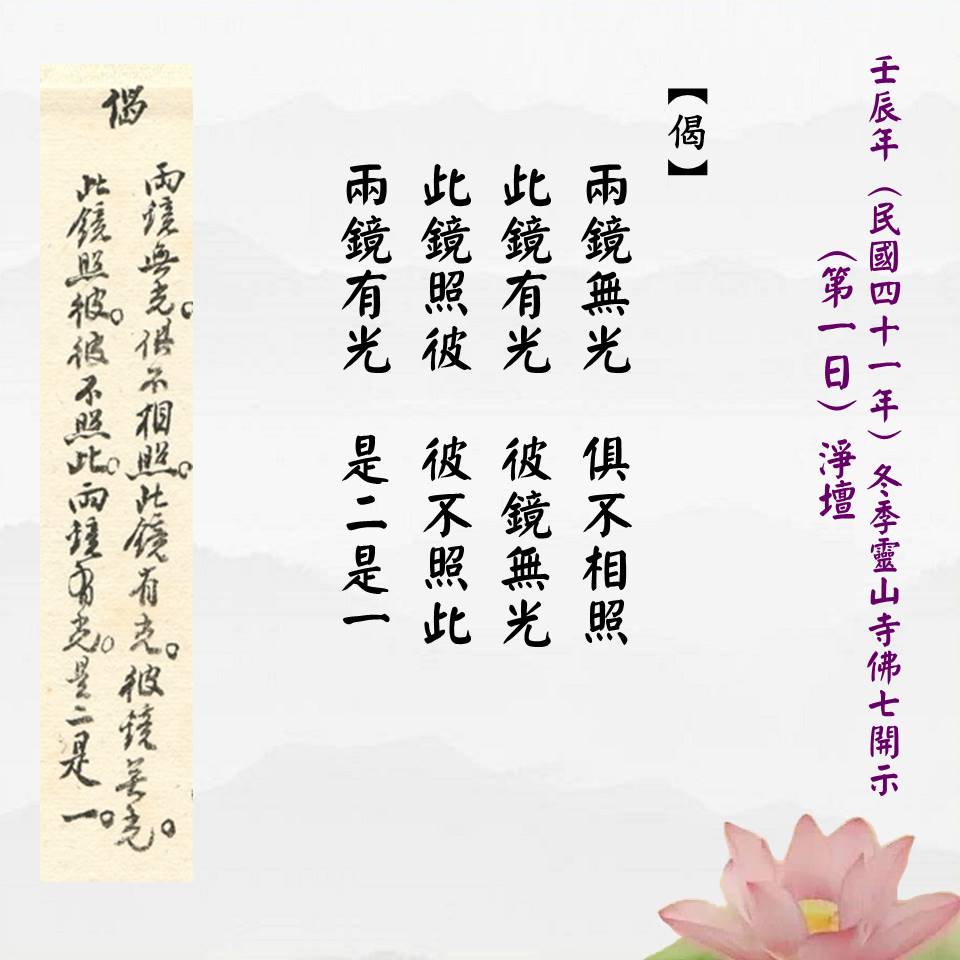 壬辰年(民國四十一年)冬季靈山寺佛七開示
(第一日)淨壇
【偈】
兩鏡無光 俱不相照
此鏡有光 彼鏡無光
此鏡照彼 彼不照此
兩鏡有光 是二是一
偈
兩鏡無光。俱不相照。此鏡有光。彼鏡無光。
此鏡照彼。彼不照此。兩鏡有光。是二是一。